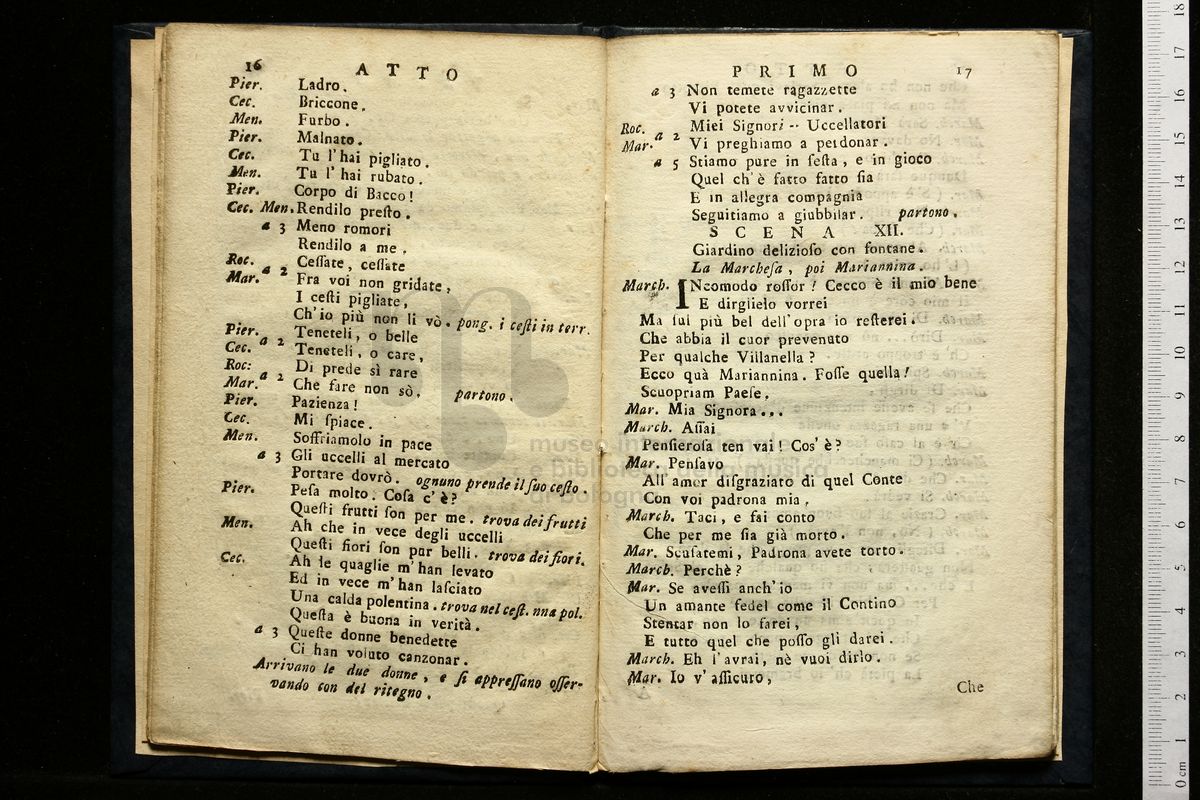 16 ATTO
Pier. Ladro.
Cec. Briccone.
Men. Furbo.
Pier. Malnato.
Cec. Tu l'hai pigliato.
Men. Tu l'hai rubato.
Pier. Corpo di Bacco!
Cec. Men. Rendilo preſto.
a 3 Meno romori
Rendilo a me.
Roc. Mar. a 2 Ceſſate, ceſſate
Fra voi non gridate,
I ceſti pigliate,
Ch'io più non li vò. pong. i ceſti in terr.
Pier. Cec. a 2 Teneteli, o belle
Teneteli, o care,
Roc: Mar. a 2 Di prede sì rare
Che fare non sò. partono.
Pier. Pazienza!
Cec. Mi ſpiace.
Men. Soffriamolo in pace
a 3 Gli uccelli al mercato
Portare dovrò. ognuno prende il ſuo ceſto.
Pier. Peſa molto. Coſa c'è?
Queſti frutti ſon per me. trova dei frutti
Men. Ah che in vece degli uccelli
Queſti fiori ſon pur belli. trova dei fiori.
Cec. Ah le quaglie m'han levato
Ed in vece m'han laſciato
Una calda polentina. trova nel ceſt. nna pol.
Queſta è buona in verità.
a 3 Queſte donne benedette
Ci han voluto canzonar.
Arrivano le due donne, e ſi appreſſano oſſer-
vando con del ritegno.
PRIMO 17
a 3 Non temete ragazzette
Vi potete avvicinar.
Roc. Mar. a 2 Miei Signori -- Uccellatori
Vi preghiamo a perdonar.
a 5 Stiamo pure in feſta, e in gioco
Quel ch'è fatto fatto ſia
E in allegra compagnia
Seguitiamo a giubbilar. partono.
SCENA XII.
Giardino delizioſo con fontane.
La Marcheſa, poi Mariannina.
March. INcomodo roſſor! Cecco è il mio bene
E dirglielo vorrei
Ma ſul più bel dell'opra io reſterei.
Che abbia il cuor prevenuto
Per qualche Villanella?
Ecco quà Mariannina. Foſſe quella!
Scuopriam Paeſe.
Mar. Mia Signora...
March. Aſſai
Penſieroſa ten vai! Cos'è?
Mar. Penſavo
All'amor diſgraziato di quel Conte
Con voi padrona mia.
March. Taci, e fai conto
Che per me ſia già morto.
Mar. Scuſatemi, Padrona avete torto.
March. Perchè?
Mar. Se aveſſi anch'io
Un amante fedel come il Contino
Stentar non lo farei,
E tutto quel che poſſo gli darei.
March. Eh l'avrai, nè vuoi dirlo.
Mar. Io v'aſſicuro,
Che
museo internazionale
e biblioteca della musica
di bologna
0 cm 1 2 3 4 5 6 7 8 9 10 11 12 13 14 15 16 17 18